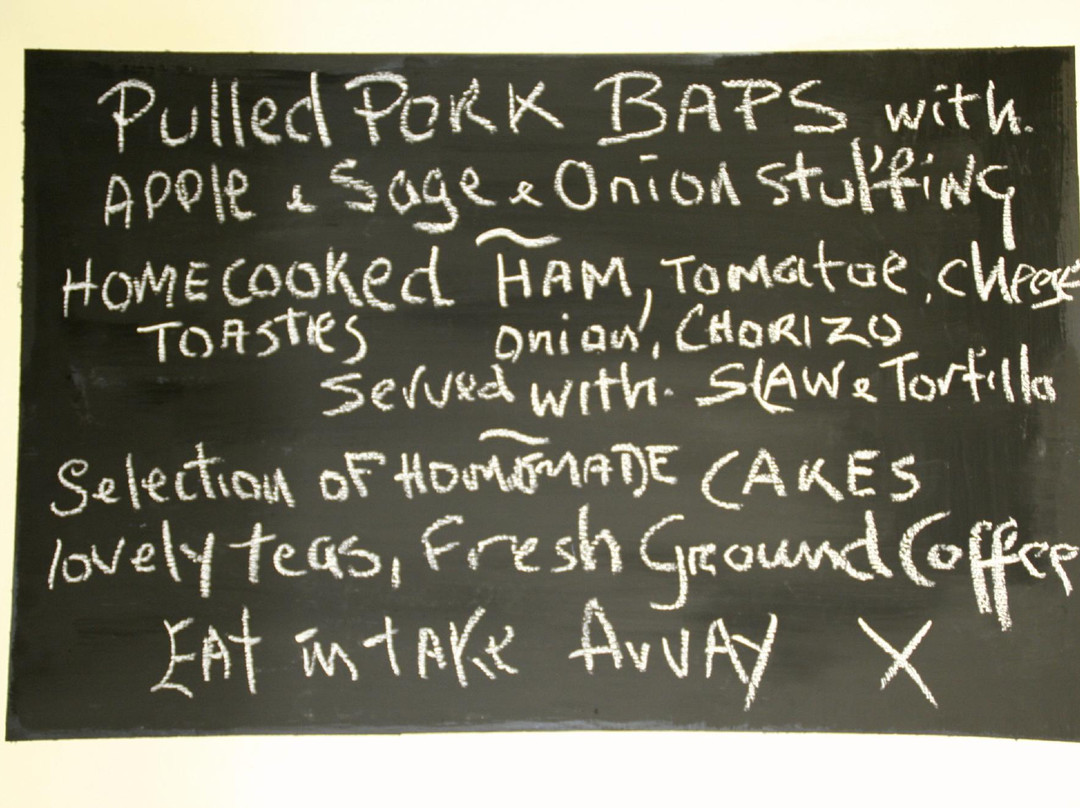 Pulled PORK BAPS with.
APPle & Sage & Onion stuffiNg
~
HOMECOOKed HAM, Tomatoe, cheese
TOASTIES onion, CHORIZO
Served with. SlAW & Tortilla
~
Selection oF HOMEMADE CAKES
lovely teas, Fresh Ground Coffee
EAt in tAKe AWAY X